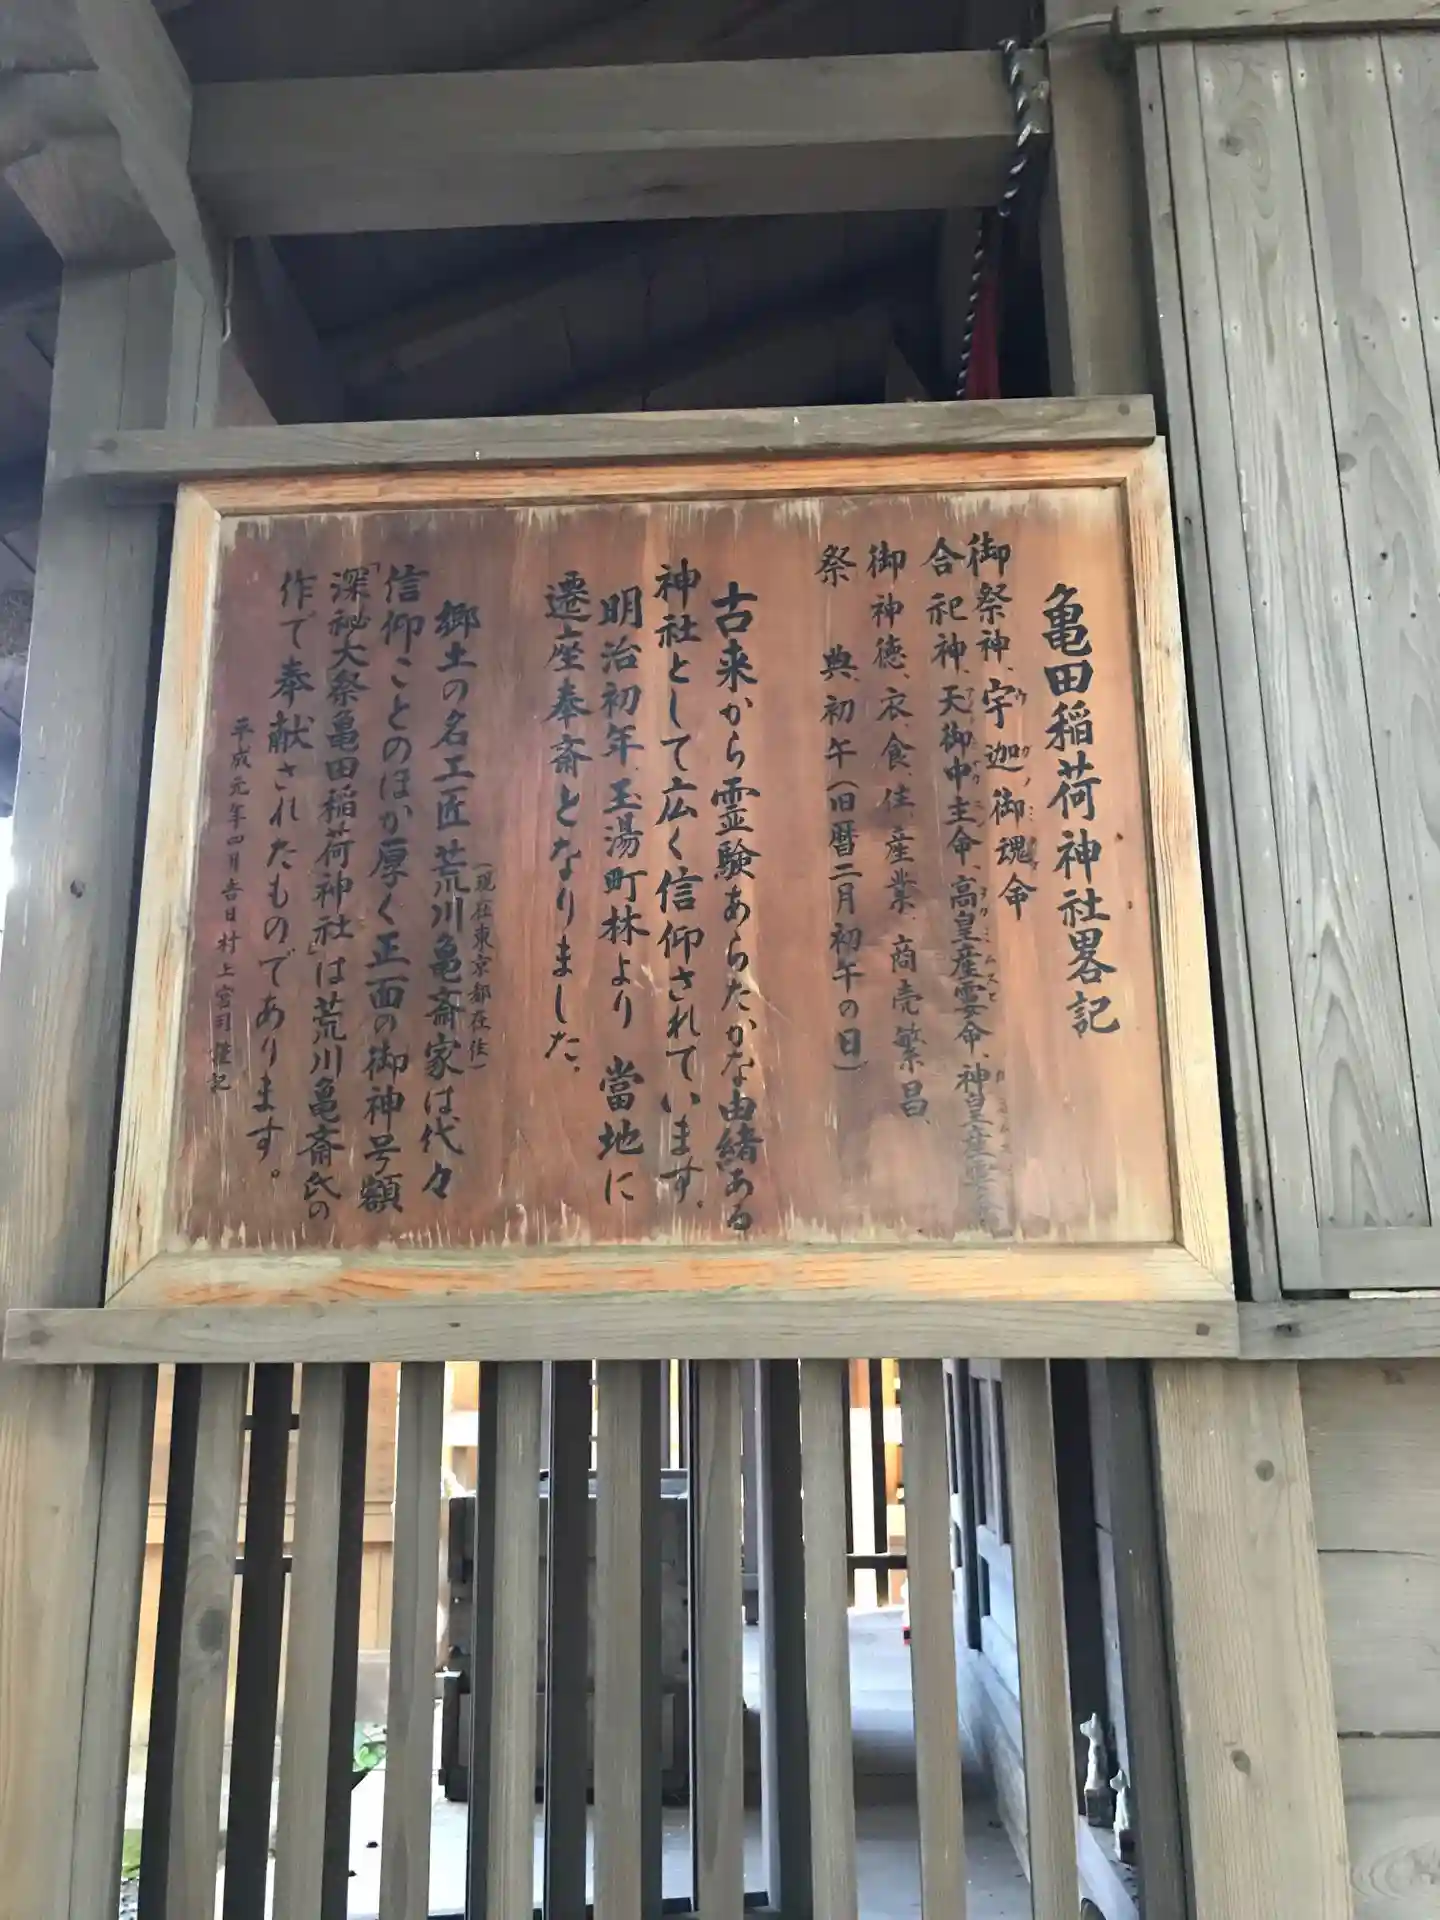 亀田稲荷神社畧記
御祭神、宇迦御魂命
合祀神、天御中主命、高皇産霊命、神皇産霊命
御神徳、衣、食、住、産業、商売繁昌、
祭　典、初午(旧暦二月初午の日)
古来から霊験あらたかな由緒ある
神社として広く信仰されています。
明治初年、玉湯町林より當地に
遷座奉斎となりました。
(現在東京都在住)
郷土の名工匠荒川亀斎家は代々
信仰ことのほか厚く正面の御神号額
「深秘大祭亀田稲荷神社」は荒川亀斎氏の
作で奉献されたものであります。
平成元年四月吉日村上宮司謹記